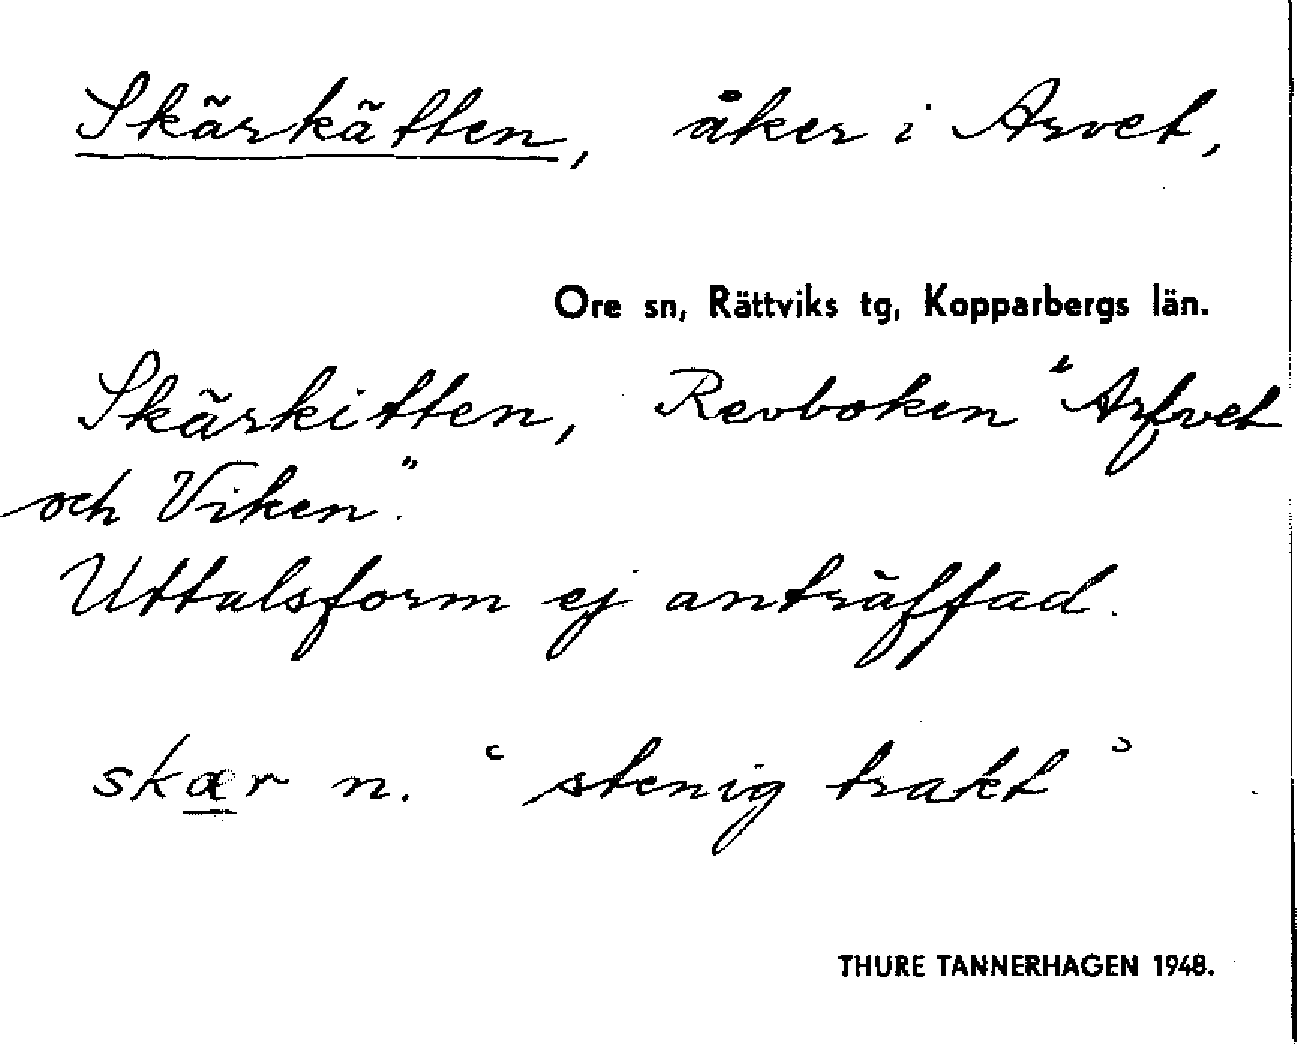 Skärkätten, åker i Arvet,
Ore sn, Rättviks tg, Kopparbergs län.
Skärkitten, Revboken "Arfvet
och Viken".
Uttalsform ej anträffad.
skær n. ʿstenig traktʾ
THURE TANNERHAGEN 1948.